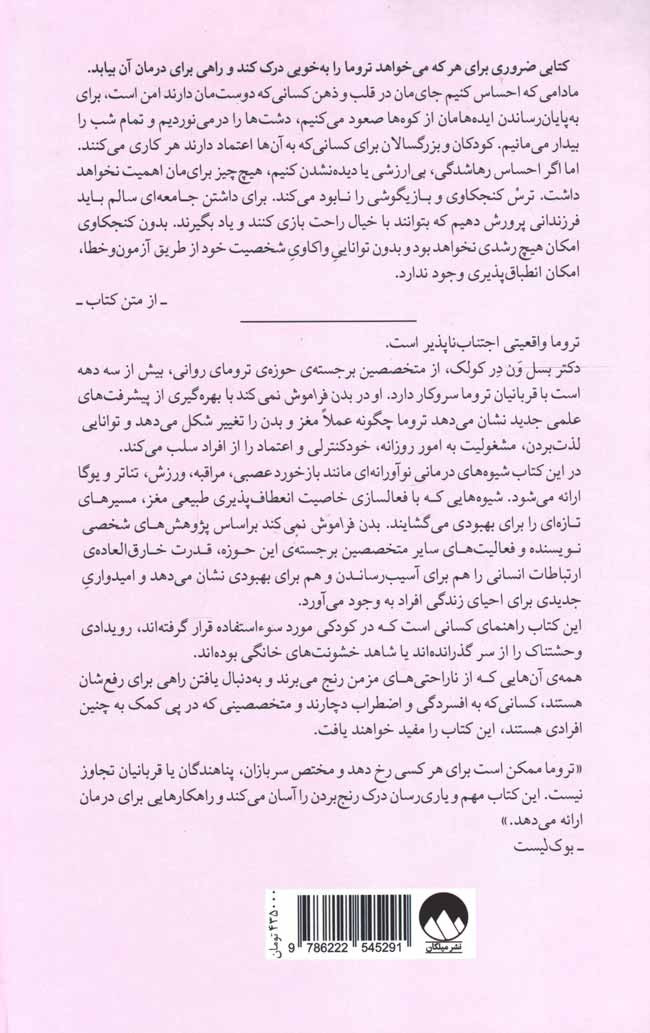 کتابی ضروری برای هر که می‌خواهد تروما را به‌خوبی درک کند و راهی برای درمان آن بیابد.
مادامی که احساس کنیم جای‌مان در قلب و ذهن کسانی‌که دوست‌مان دارند امن است، برای
به‌پایان‌رساندن ایده‌هامان از کوه‌ها صعود می‌کنیم، دشت‌ها را درمی‌نوردیم و تمام شب را
بیدار می‌مانیم. کودکان و بزرگسالان برای کسانی‌که به آن‌ها اعتماد دارند هر کاری می‌کنند.
اما اگر احساس رهاشدگی، بی‌ارزشی یا دیده‌نشدن کنیم، هیچ‌چیز برای‌مان اهمیت نخواهد
داشت. ترسْ کنجکاوی و بازیگوشی را نابود می‌کند. برای داشتن جامعه‌ای سالم باید
فرزندانی پرورش دهیم که بتوانند با خیال راحت بازی کنند و یاد بگیرند. بدون کنجکاوی
امکان هیچ رشدی نخواهد بود و بدون تواناییِ واکاویِ شخصیت خود از طریق آزمون‌وخطا،
امکان انطباق‌پذیری وجود ندارد.
ـ از متن کتاب ـ
تروما واقعیتی اجتناب‌ناپذیر است.
دکتر بسل وَن دِر کولک، از متخصصین برجسته‌ی حوزه‌ی ترومای روانی، بیش از سه دهه
است با قربانیان تروما سروکار دارد. او در بدن فراموش نمی‌کند با بهره‌گیری از پیشرفت‌های
علمی جدید نشان می‌دهد تروما چگونه عملاً مغز و بدن را تغییر شکل می‌دهد و توانایی
لذت‌بردن، مشغولیت به امور روزانه، خودکنترلی و اعتماد را از افراد سلب می‌کند.
در این کتاب شیوه‌های درمانی نوآورانه‌ای مانند بازخورد عصبی، مراقبه، ورزش، تئاتر و یوگا
ارائه می‌شود. شیوه‌هایی که با فعالسازی خاصیت انعطاف‌پذیری طبیعی مغز، مسیرهای
تازه‌ای را برای بهبودی می‌گشایند. بدن فراموش نمی‌کند براساس پژوهش‌های شخصی
نویسنده و فعالیت‌های سایر متخصصین برجسته‌ی این حوزه، قدرت خارق‌العاده‌ی
ارتباطات انسانی را هم برای آسیب‌رساندن و هم برای بهبودی نشان می‌دهد و امیدواریِ
جدیدی برای احیای زندگی افراد به وجود می‌آورد.
این کتاب راهنمای کسانی است که در کودکی مورد سوءاستفاده قرار گرفته‌اند، رویدادی
وحشتناک را از سر گذرانده‌اند یا شاهد خشونت‌های خانگی بوده‌اند.
همه‌ی آن‌هایی که از ناراحتی‌های مزمن رنج می‌برند و به‌دنبال یافتن راهی برای رفع‌شان
هستند، کسانی‌که به افسردگی و اضطراب دچارند و متخصصینی که در پی کمک به چنین
افرادی هستند، این کتاب را مفید خواهند یافت.
«تروما ممکن است برای هر کسی رخ دهد و مختص سربازان، پناهندگان یا قربانیان تجاوز
نیست. این کتاب مهم و یاری‌رسان درک رنج‌بردن را آسان می‌کند و راهکارهایی برای درمان
ارائه می‌دهد.»
ـ بوک‌لیست
نشر میلکان
۴۳۵۰۰۰ تومان
9 786222 545291